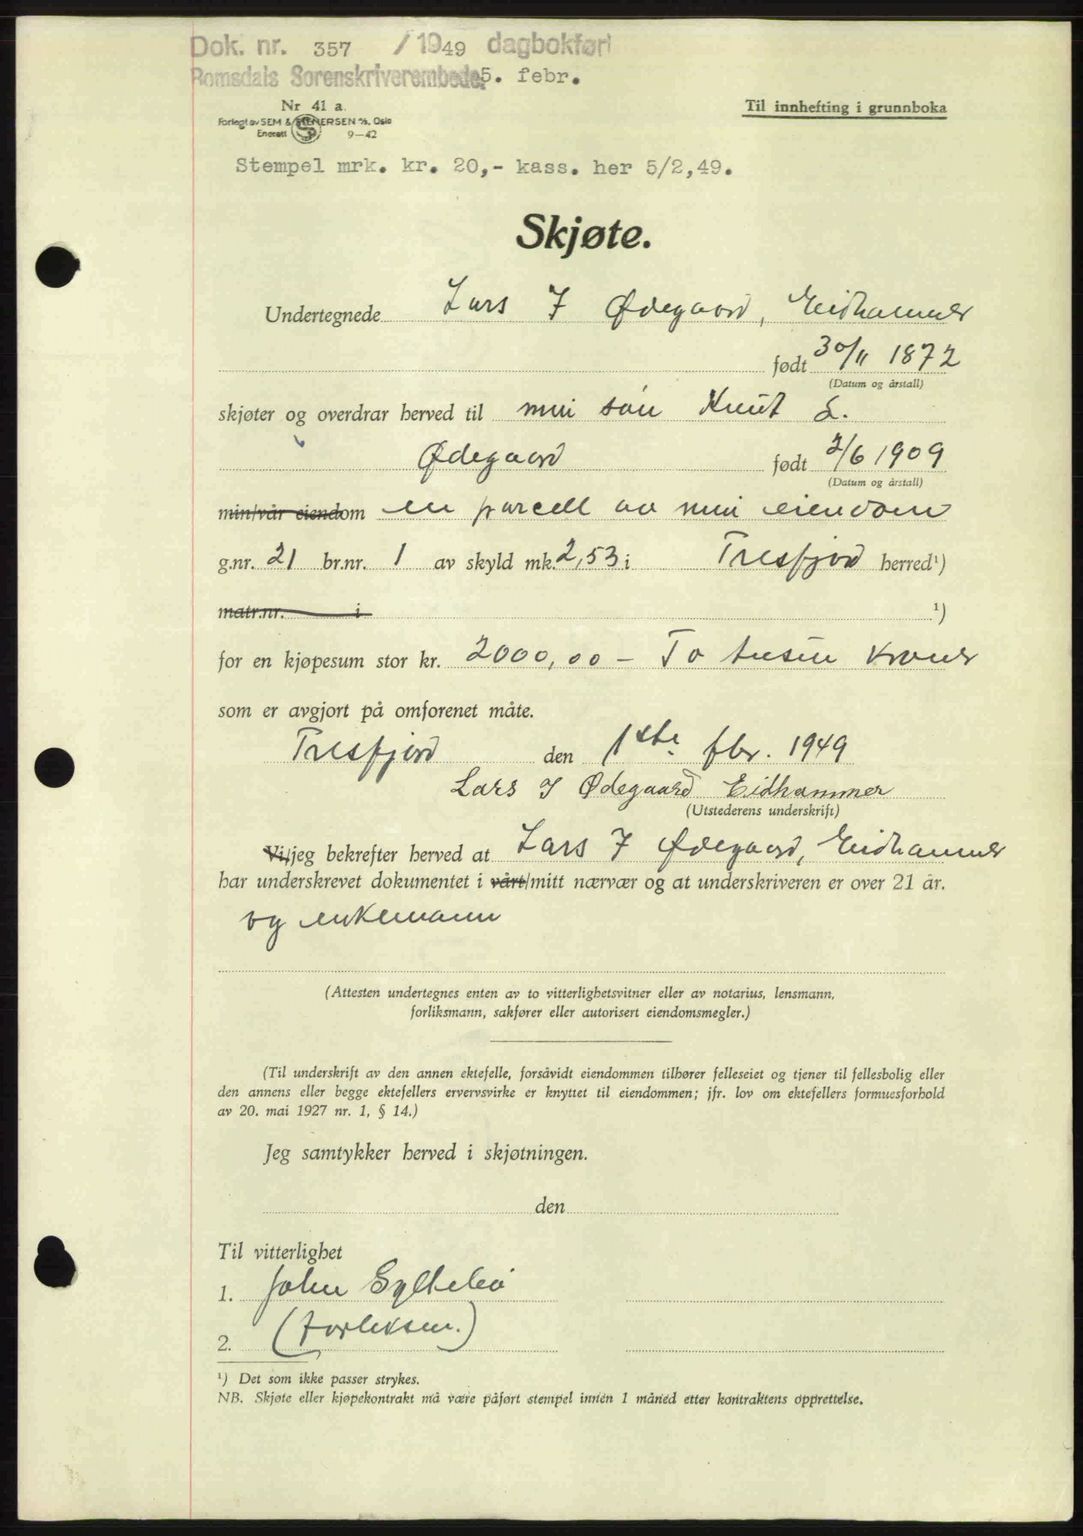 Dok. nr. 357 / 1949 dagbokført
Romsdals Sorenskriverembede 5. febr.
Nr 41 a.
Forlagt av SEM & STENERSEN A/S, Oslo
Enerett 9—42
Til innhefting i grunnboka
Stempel mrk. kr. 20,- kass. her 5/2,49.
Skjøte.
Undertegnede Lars J Ødegaard, Eidhammer
født 30/11 1872
(Datum og årstall)
skjøter og overdrar herved til min sön Knut L.
Ødegaard født 2/6 1909
(Datum og årstall)
min/vår eiendom en parcell av min eiendom
g.nr. 21 br.nr. 1 av skyld mk. 2,53 i Tresfjord herred¹)
matr.nr. i ¹)
for en kjøpesum stor kr. 2000,00 – To tusen kroner
som er avgjort på omforenet måte.
Tresfjord den 1ste fbr. 1949
Lars J Ødegaard Eidhammer
(Utstederens underskrift)
Vi/jeg bekrefter herved at Lars J Ødegaard, Eidhammer
har underskrevet dokumentet i vårt/mitt nærvær og at underskriveren er over 21 år.
og enkemann
(Attesten undertegnes enten av to vitterlighetsvitner eller av notarius, lensmann,
forliksmann, sakfører eller autorisert eiendomsmegler.)
(Til underskrift av den annen ektefelle, forsåvidt eiendommen tilhører felleseiet og tjener til fellesbolig eller
den annens eller begge ektefellers ervervsvirke er knyttet til eiendommen; jfr. lov om ektefellers formuesforhold
av 20. mai 1927 nr. 1, § 14.)
Jeg samtykker herved i skjøtningen.
den
Til vitterlighet
1. John Syltebö
2. (forliksm.)
¹) Det som ikke passer strykes.
NB. Skjøte eller kjøpekontrakt må være påført stempel innen 1 måned etter kontraktens opprettelse.